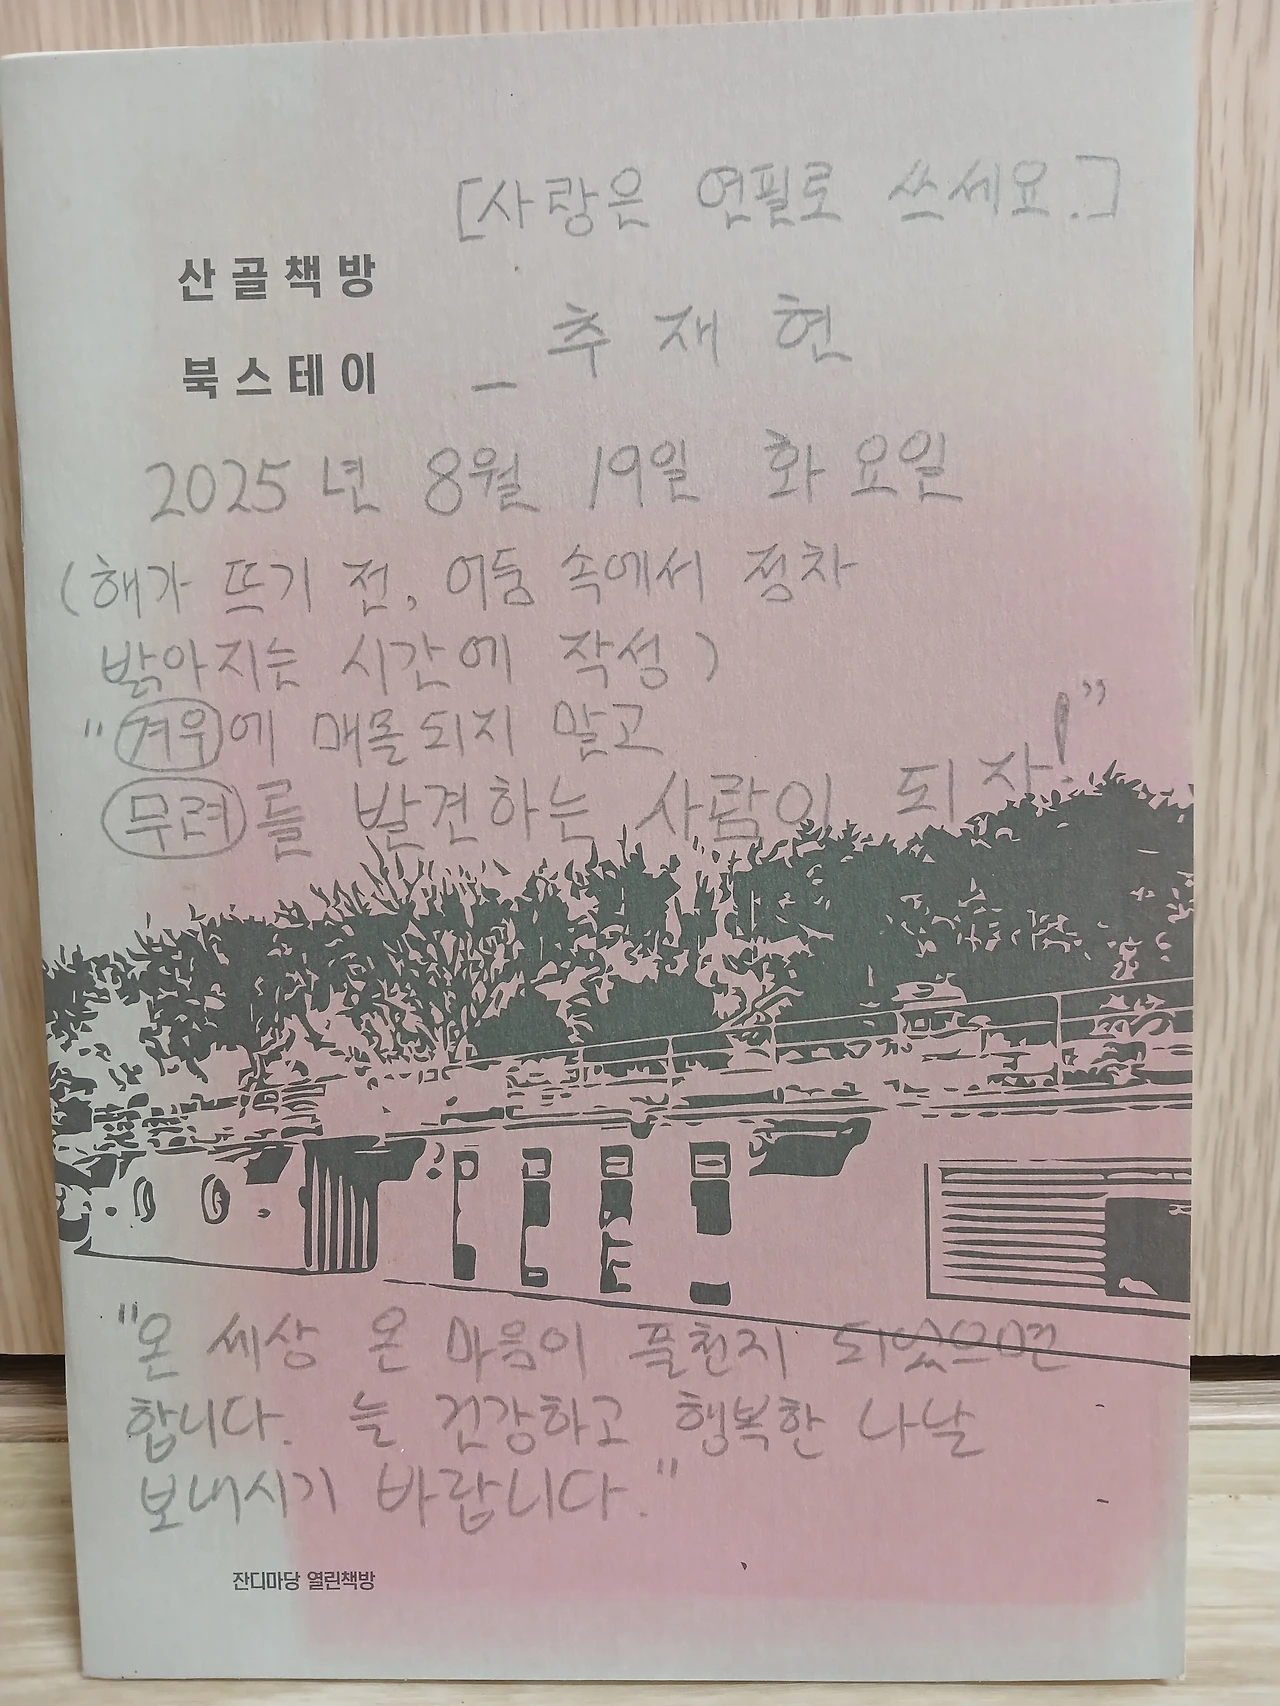 [사랑은 연필로 쓰세요.]
산골책방
북스테이
_ 추재현
2025년 8월 19일 화요일
(해가 뜨기 전, 어둠 속에서 점차
밝아지는 시간에 작성)
"겨우에 매몰되지 말고
무려를 발견하는 사람이 되자!"
"온 세상 온 마음이 플천지 되었으면
합니다. 늘 건강하고 행복한 나날
보내시기 바랍니다."
잔디마당 열린책방